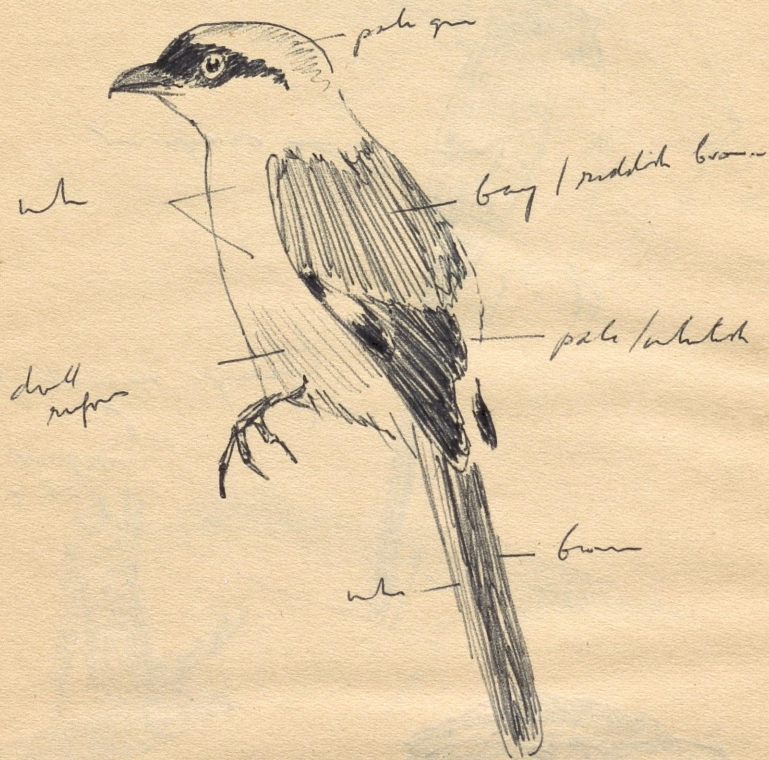 pale grey
bay / reddish brown
wh
pale / whitish
dull
rufous
brown
wh